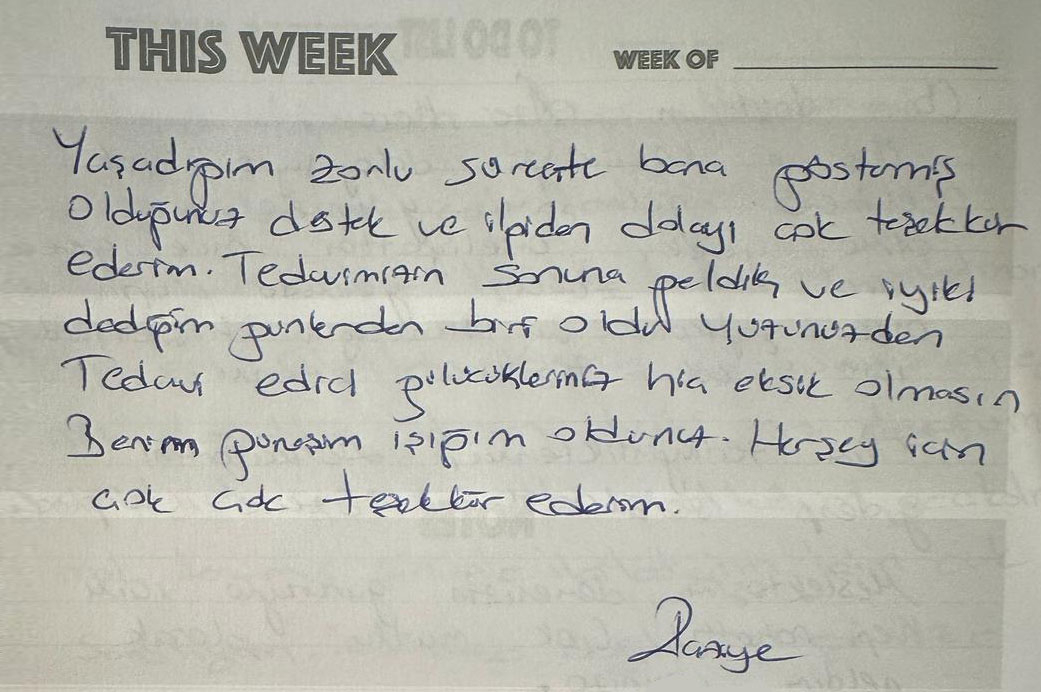 THIS WEEK
WEEK OF
Yaşadığım zorlu süreçte bana göstermiş
Olduğunuz destek ve ilgiden dolayı çok teşekkür
ederim. Tedavimizin sonuna geldik ve iyiki
dediğim günlerden biri oldu yüzünüzden
Tedavi edici gülücükleriniz hiç eksik olmasın
Benim güneşim ışığım oldunuz. Herşey için
çok çok teşekkür ederim.